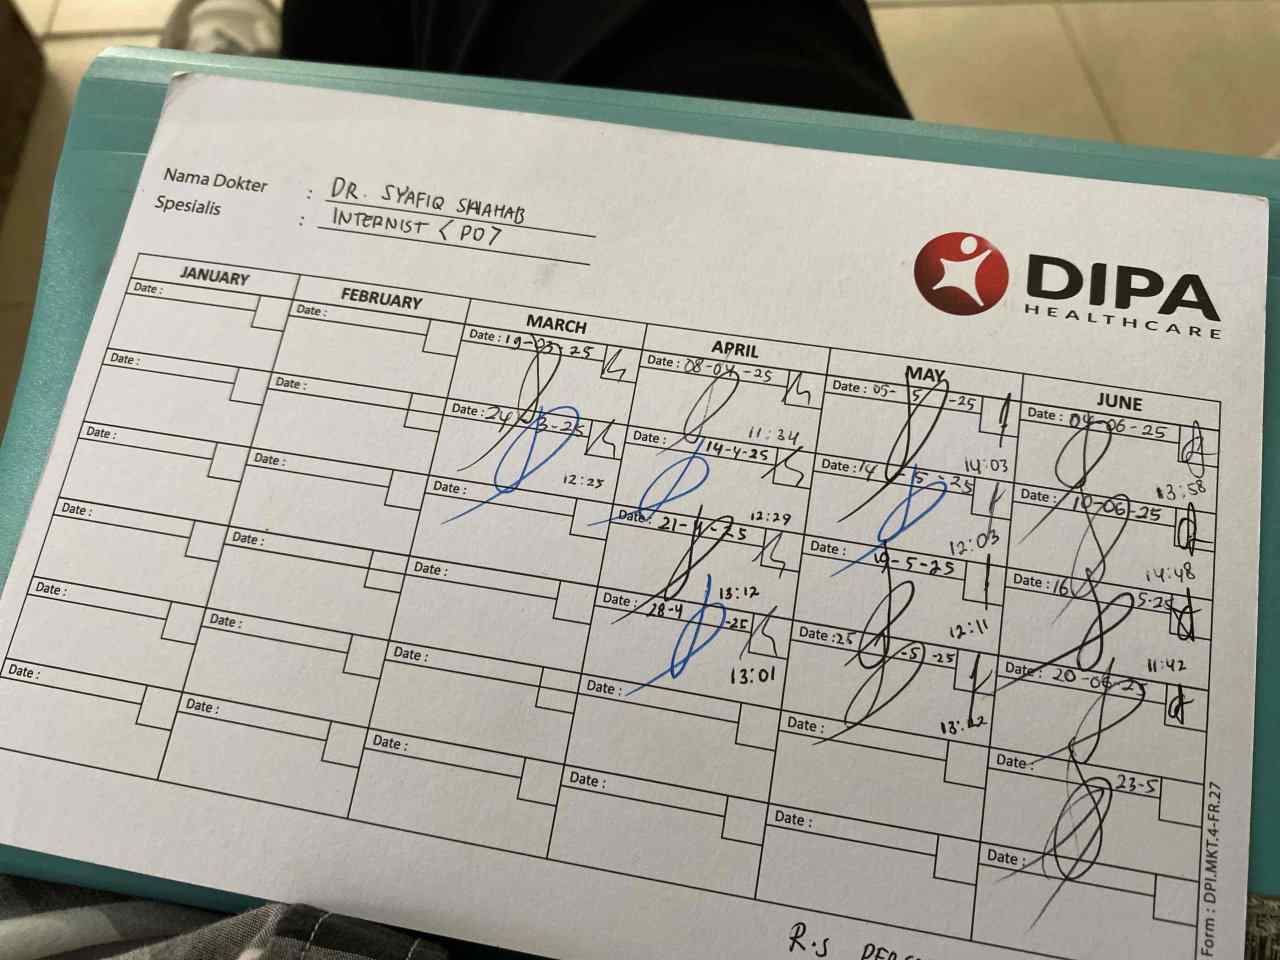 Nama Dokter : DR. SYAFIQ SHAHAB
Spesialis : INTERNIST < PO7
DIPA
HEALTHCARE
JANUARY FEBRUARY MARCH APRIL MAY JUNE
Date : Date : Date : 19-03-25 Date : 08-04-25 Date : 05-5-25 Date : 04-06-25
11:34 14:03 13:58
Date : Date : Date : 24-3-25 Date : 14-4-25 Date : 14-5-25 Date : 10-06-25
12:25 12:29 12:03 14:48
Date : Date : Date : Date : 21-4-25 Date : 19-5-25 Date : 16 5-25
13:12 12:11 11:42
Date : Date : Date : Date : 28-4-25 Date : 25-5-25 Date : 20-06-25
13:01
Date : Date : Date : Date : Date : Date : 23-5
Date : Date : Date : Date : Date : Date :
R.S
Form : DPI.MKT.4-FR.27